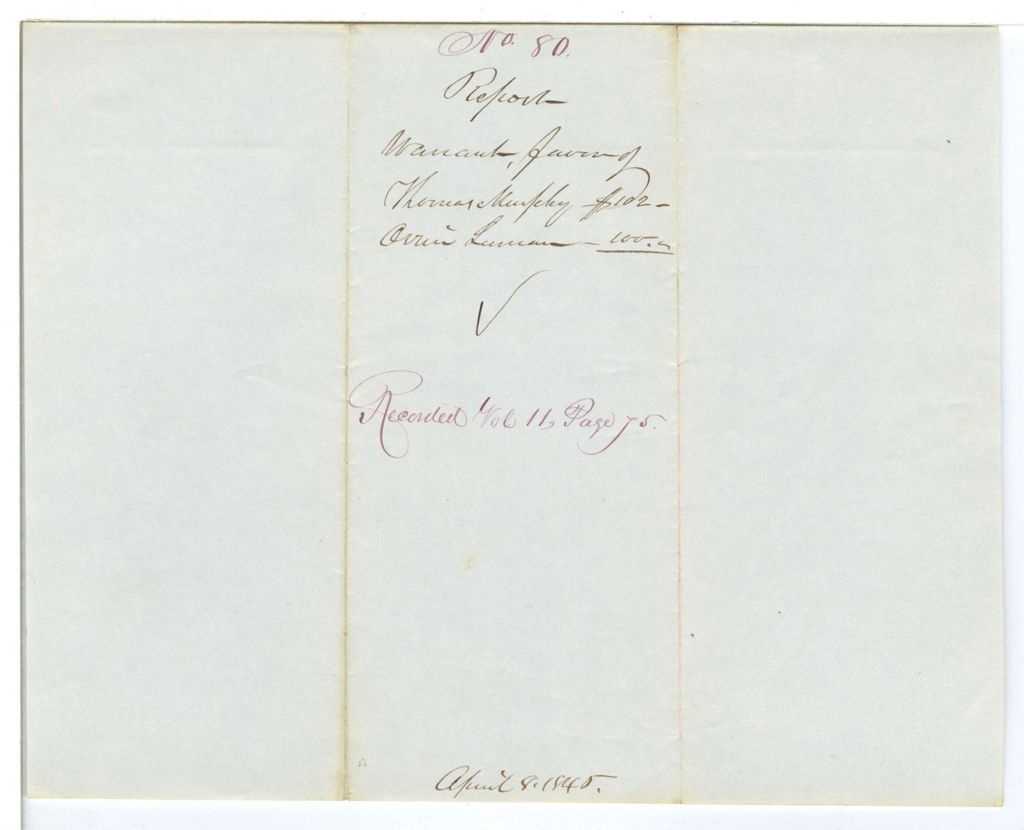 No. 80.
Report
Warrant, favor of
Thomas Murphy $102 –
Orrin Luman – 100. "
Recorded Vol 11, Page 75.
April 8. 1845.